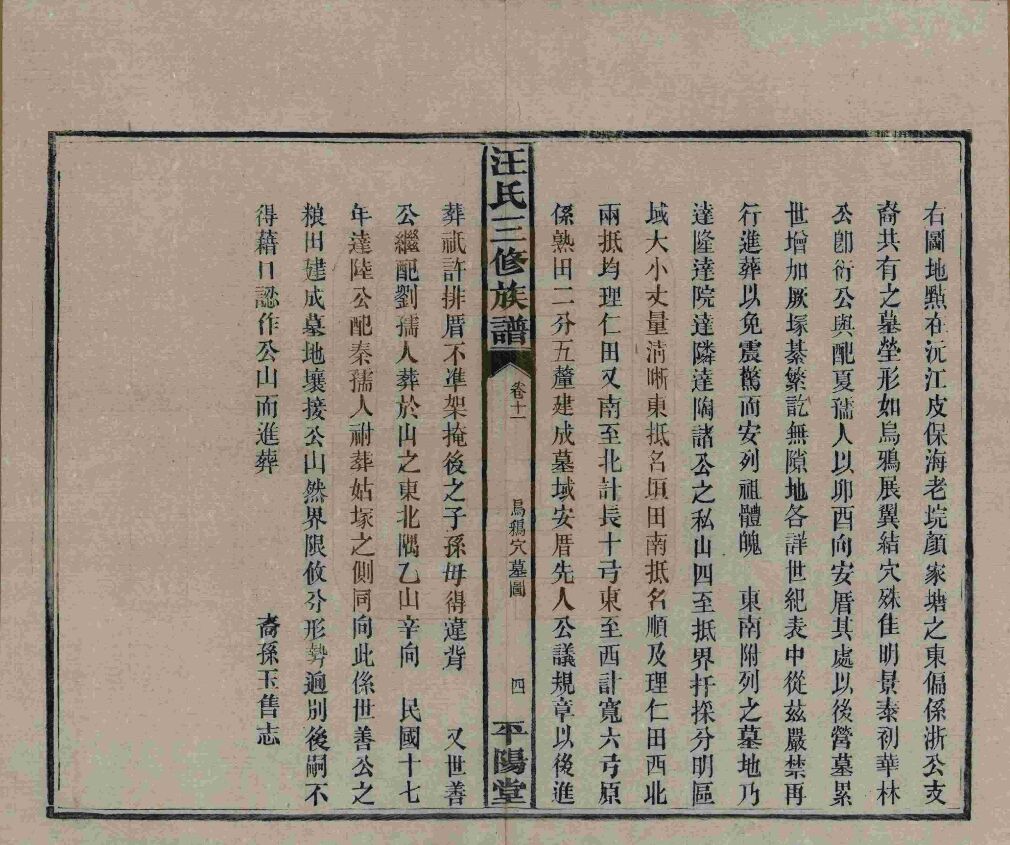 右圖地點在沅江皮保海老垸顏家塘之東偏係浙公支
裔共有之墓塋形如烏鴉展翼結穴殊佳明景泰初華林
公卽衍公與配夏孺人以卯酉向安厝其處以後營墓累
世增加厥塚綦繁訖無隙地各詳世紀表中從茲嚴禁再
行進葬以免震驚而安列祖體魄　東南附列之墓地乃
達隆達院達隣達陶諸公之私山四至抵界扦採分明區
域大小丈量淸晰東抵名垣田南抵名順及理仁田西北
兩抵均理仁田又南至北計長十弓東至西計寬六弓原
係熟田二分五釐建成墓域安厝先人公議規章以後進
汪氏三修族譜
卷十一
烏鴉穴墓圖
四
平陽堂
葬祇許排厝不准架掩後之子孫毋得違背　又世善
公繼配劉孺人葬於山之東北隅乙山辛向　民國十七
年達陸公配秦孺人祔葬姑塚之側同向此係世善公之
粮田建成墓地壤接公山然界限攸分形勢逈別後嗣不
得藉口認作公山而進葬
裔孫玉售志